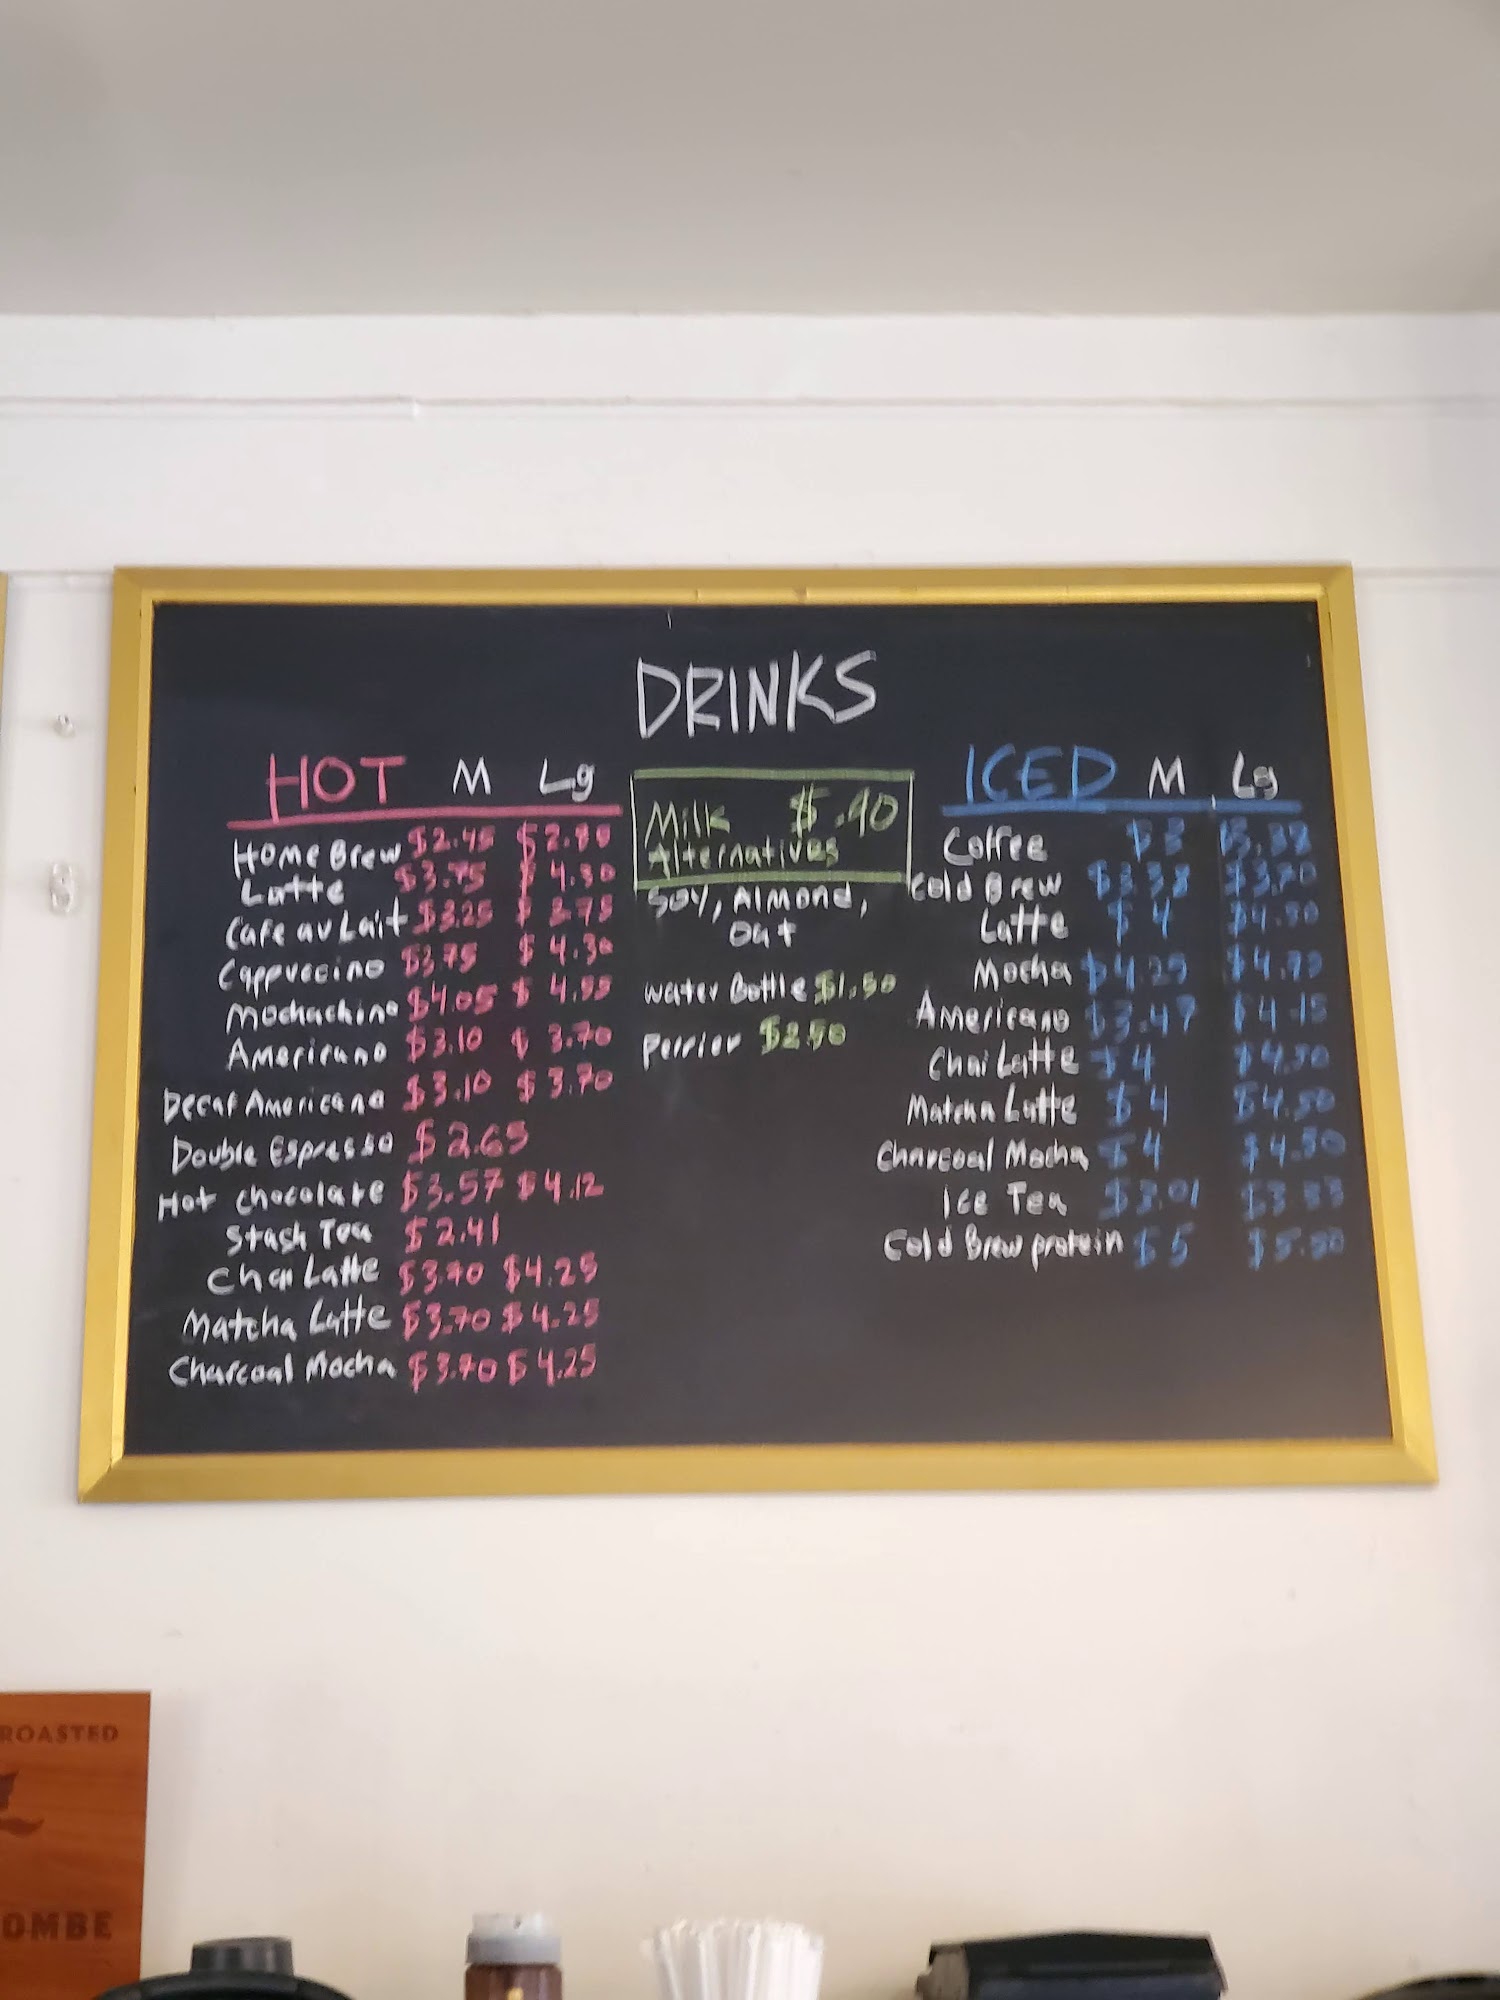 DRINKS
HOT M Lg
Home Brew $2.45 $2.80
Latte $3.75 $4.30
Cafe au Lait $3.25 $3.75
Cappuccino $3.75 $4.30
Mochachino $4.05 $4.55
Americano $3.10 $3.70
Decaf Americano $3.10 $3.70
Double Espresso $2.65
Hot chocolate $3.57 $4.12
Stash Tea $2.41
Chai Latte $3.70 $4.25
Matcha Latte $3.70 $4.25
Charcoal Mocha $3.70 $4.25
Milk $.40
Alternatives
Soy, Almond,
Oat
Water Bottle $1.50
Perrier $2.50
ICED M Lg
Coffee $3 $3.38
Cold Brew $3.38
Latte $4 $4.50
Mocha $4.25
Americano $3.47 $4.15
Chai Latte $4 $4.50
Matcha Latte $4 $4.50
Charcoal Mocha $4 $4.50
Ice Tea $3.01 $3.53
Cold Brew protein $5 $5.50
ROASTED
OMBE